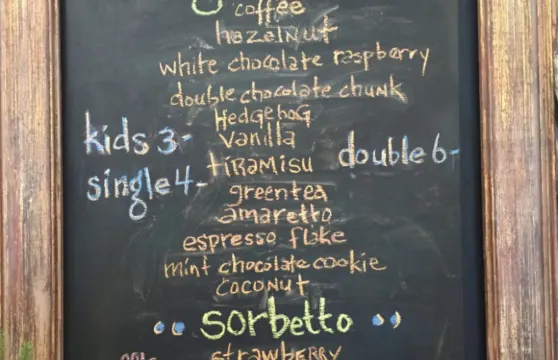 coffee
hazelnut
white chocolate raspberry
double chocolate chunk
Hedgehog
kids 3-
vanilla
double 6-
tiramisu
single 4-
greentea
amaretto
espresso flake
mint chocolate cookie
coconut
sorbetto
strawberry